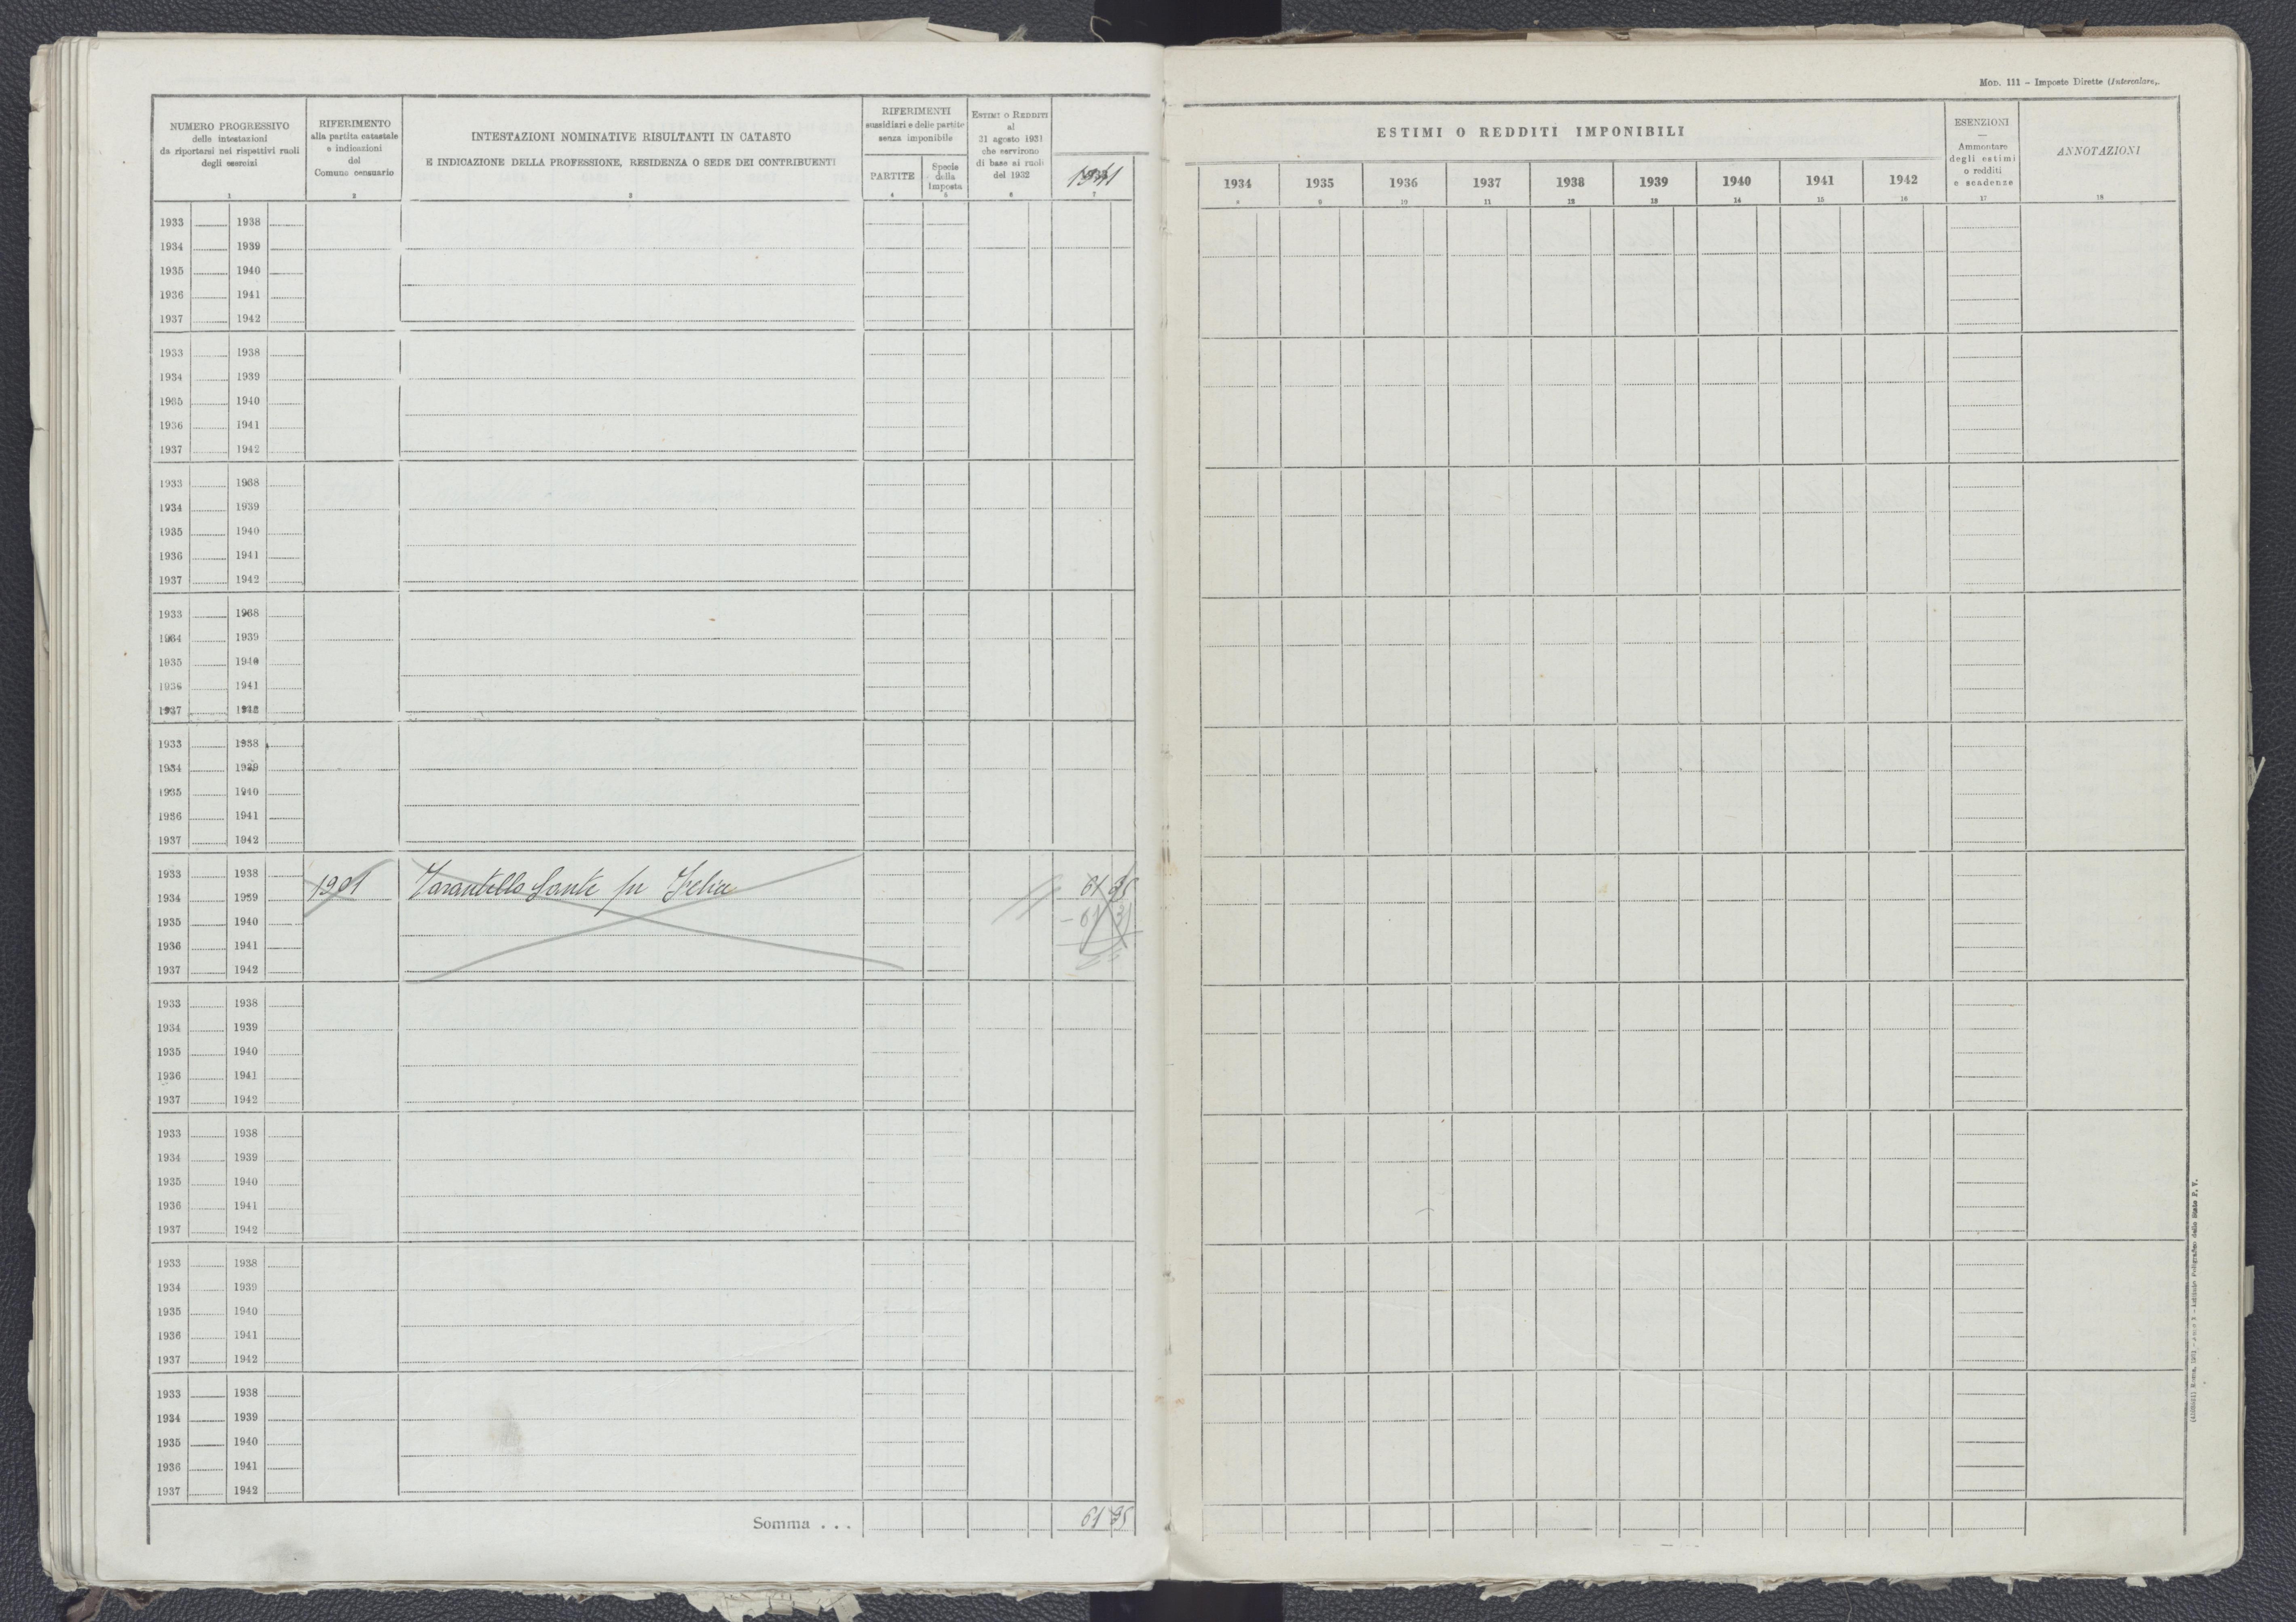 Mod. 111 - Imposte Dirette (Intercalare).
NUMERO PROGRESSIVO
delle intestazioni
da riportarsi nei rispettivi ruoli
degli esercizi
1
RIFERIMENTO
alla partita catastale
e indicazioni
del
Comune censuario
2
INTESTAZIONI NOMINATIVE RISULTANTI IN CATASTO
E INDICAZIONE DELLA PROFESSIONE, RESIDENZA O SEDE DEI CONTRIBUENTI
3
RIFERIMENTI
sussidiari e delle partite
senza imponibile
PARTITE
4
Specie
della
Imposta
5
ESTIMI O REDDITI
al
31 agosto 1931
che servirono
di base ai ruoli
del 1932
6
1941
7
ESTIMI O REDDITI IMPONIBILI
1934 1935 1936 1937 1938 1939 1940 1941 1942
8 9 10 11 12 13 14 15 16
ESENZIONI
—
Ammontare
degli estimi
o redditi
e scadenze
17
ANNOTAZIONI
18
1933 1938
1934 1939
1935 1940
1936 1941
1937 1942
1933 1938
1934 1939
1935 1940
1936 1941
1937 1942
1933 1938
1934 1939
1935 1940
1936 1941
1937 1942
1933 1938
1934 1939
1935 1940
1936 1941
1937 1942
1933 1938
1934 1939
1935 1940
1936 1941
1937 1942
1933 1938
1934 1939 1901 Tarantello Sante fu Felice 61 35
1935 1940
1936 1941
1937 1942
1933 1938
1934 1939
1935 1940
1936 1941
1937 1942
1933 1938
1934 1939
1935 1940
1936 1941
1937 1942
1933 1938
1934 1939
1935 1940
1936 1941
1937 1942
1933 1938
1934 1939
1935 1940
1936 1941
1937 1942
Somma . . . 61 35